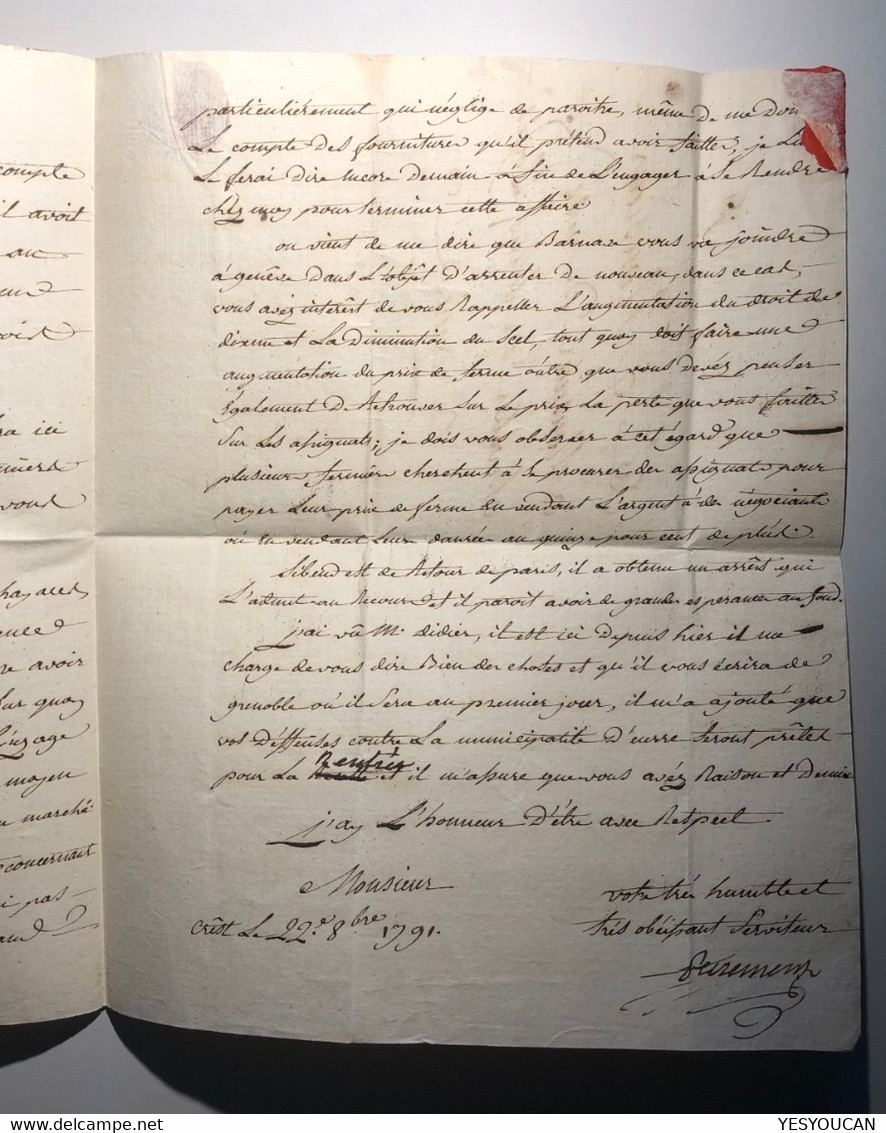 compte
il avoit
au
ici
vous
avoir
sur quoy
L'uzage
moyen
marché
concernant
pas
particulièrement qui néglige de paroitre, même de me don
Le compte des fournitures qu'il prétend avoir faittes, je Lui
Le ferai dire Encore demain à fin de L'engager à se Rendre
chés moy pour terminer cette affaire
on vient de me dire que Barnave vous va joindre
à genève dans L'objèt d'arrenter de nouveau, dans ce cas,
vous avés intérêt de vous Rappeller L'augmentation du droit de
dixme et La Diminution du Scel, tout quoy doit faire une
augmentation du prix de ferme outre que vous devés penser
Egalement De Retrouver sur Le prix La perte que vous faittes
sur Les assignats; je dois vous observer à cet égard que
plusieurs fermiers cherchent à se procurer des assignats pour
payer Leur prix de ferme En vendant L'argent à des négociants
où En vendant Leurs danrées au quinze pour cent de plus.
est de Retour de paris, il a obtenu un arrêts qui
L'admet au Recours et il paroit avoir de grandes esperances au fond.
j'ai vû Mr. didier, il est ici Depuis hier il me
charge de vous dire Bien des choses et qu'il vous écrira de
grenoble où il Sera au premier jour, il m'a ajouté que
vos deffenses contre La municipalité d'eurre seront prêtes
pour La Rentrée et il m'assure que vous avés Raison et Demie
J'ay L'honneur D'être avec Respect
Monsieur
votre très humble et
très obéissant Serviteur
Crêst Le 22e. 8bre 1791.
YESYOUCAN